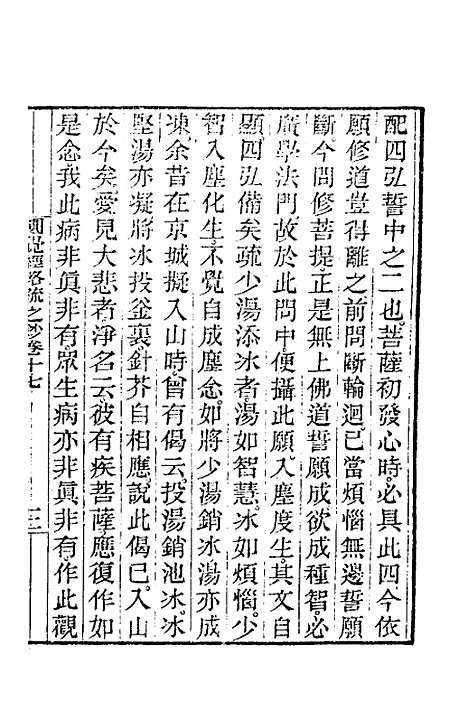 配四弘誓中之二也菩薩初發心時必具此四今依
願修道豈得離之前問斷輪迴已當煩惱無邊誓願
斷今問修菩提正是無上佛道誓願成欲成種智必
廣學法門故於此問中便攝此願入塵度生其文自
顯四弘備矣疏少湯添冰者湯如智慧冰如煩惱少
智入塵化生不覺自成塵念如將少湯銷冰湯亦成
凍余昔在京城擬入山時曾有偈云投湯銷池冰冰
堅湯亦凝將冰投釜裏針芥自相應說此偈已入山
於今矣愛見大悲者淨名云彼有疾菩薩應復作如
是念我此病非眞非有眾生病亦非眞非有作此觀
圓覺經略疏之鈔卷十七